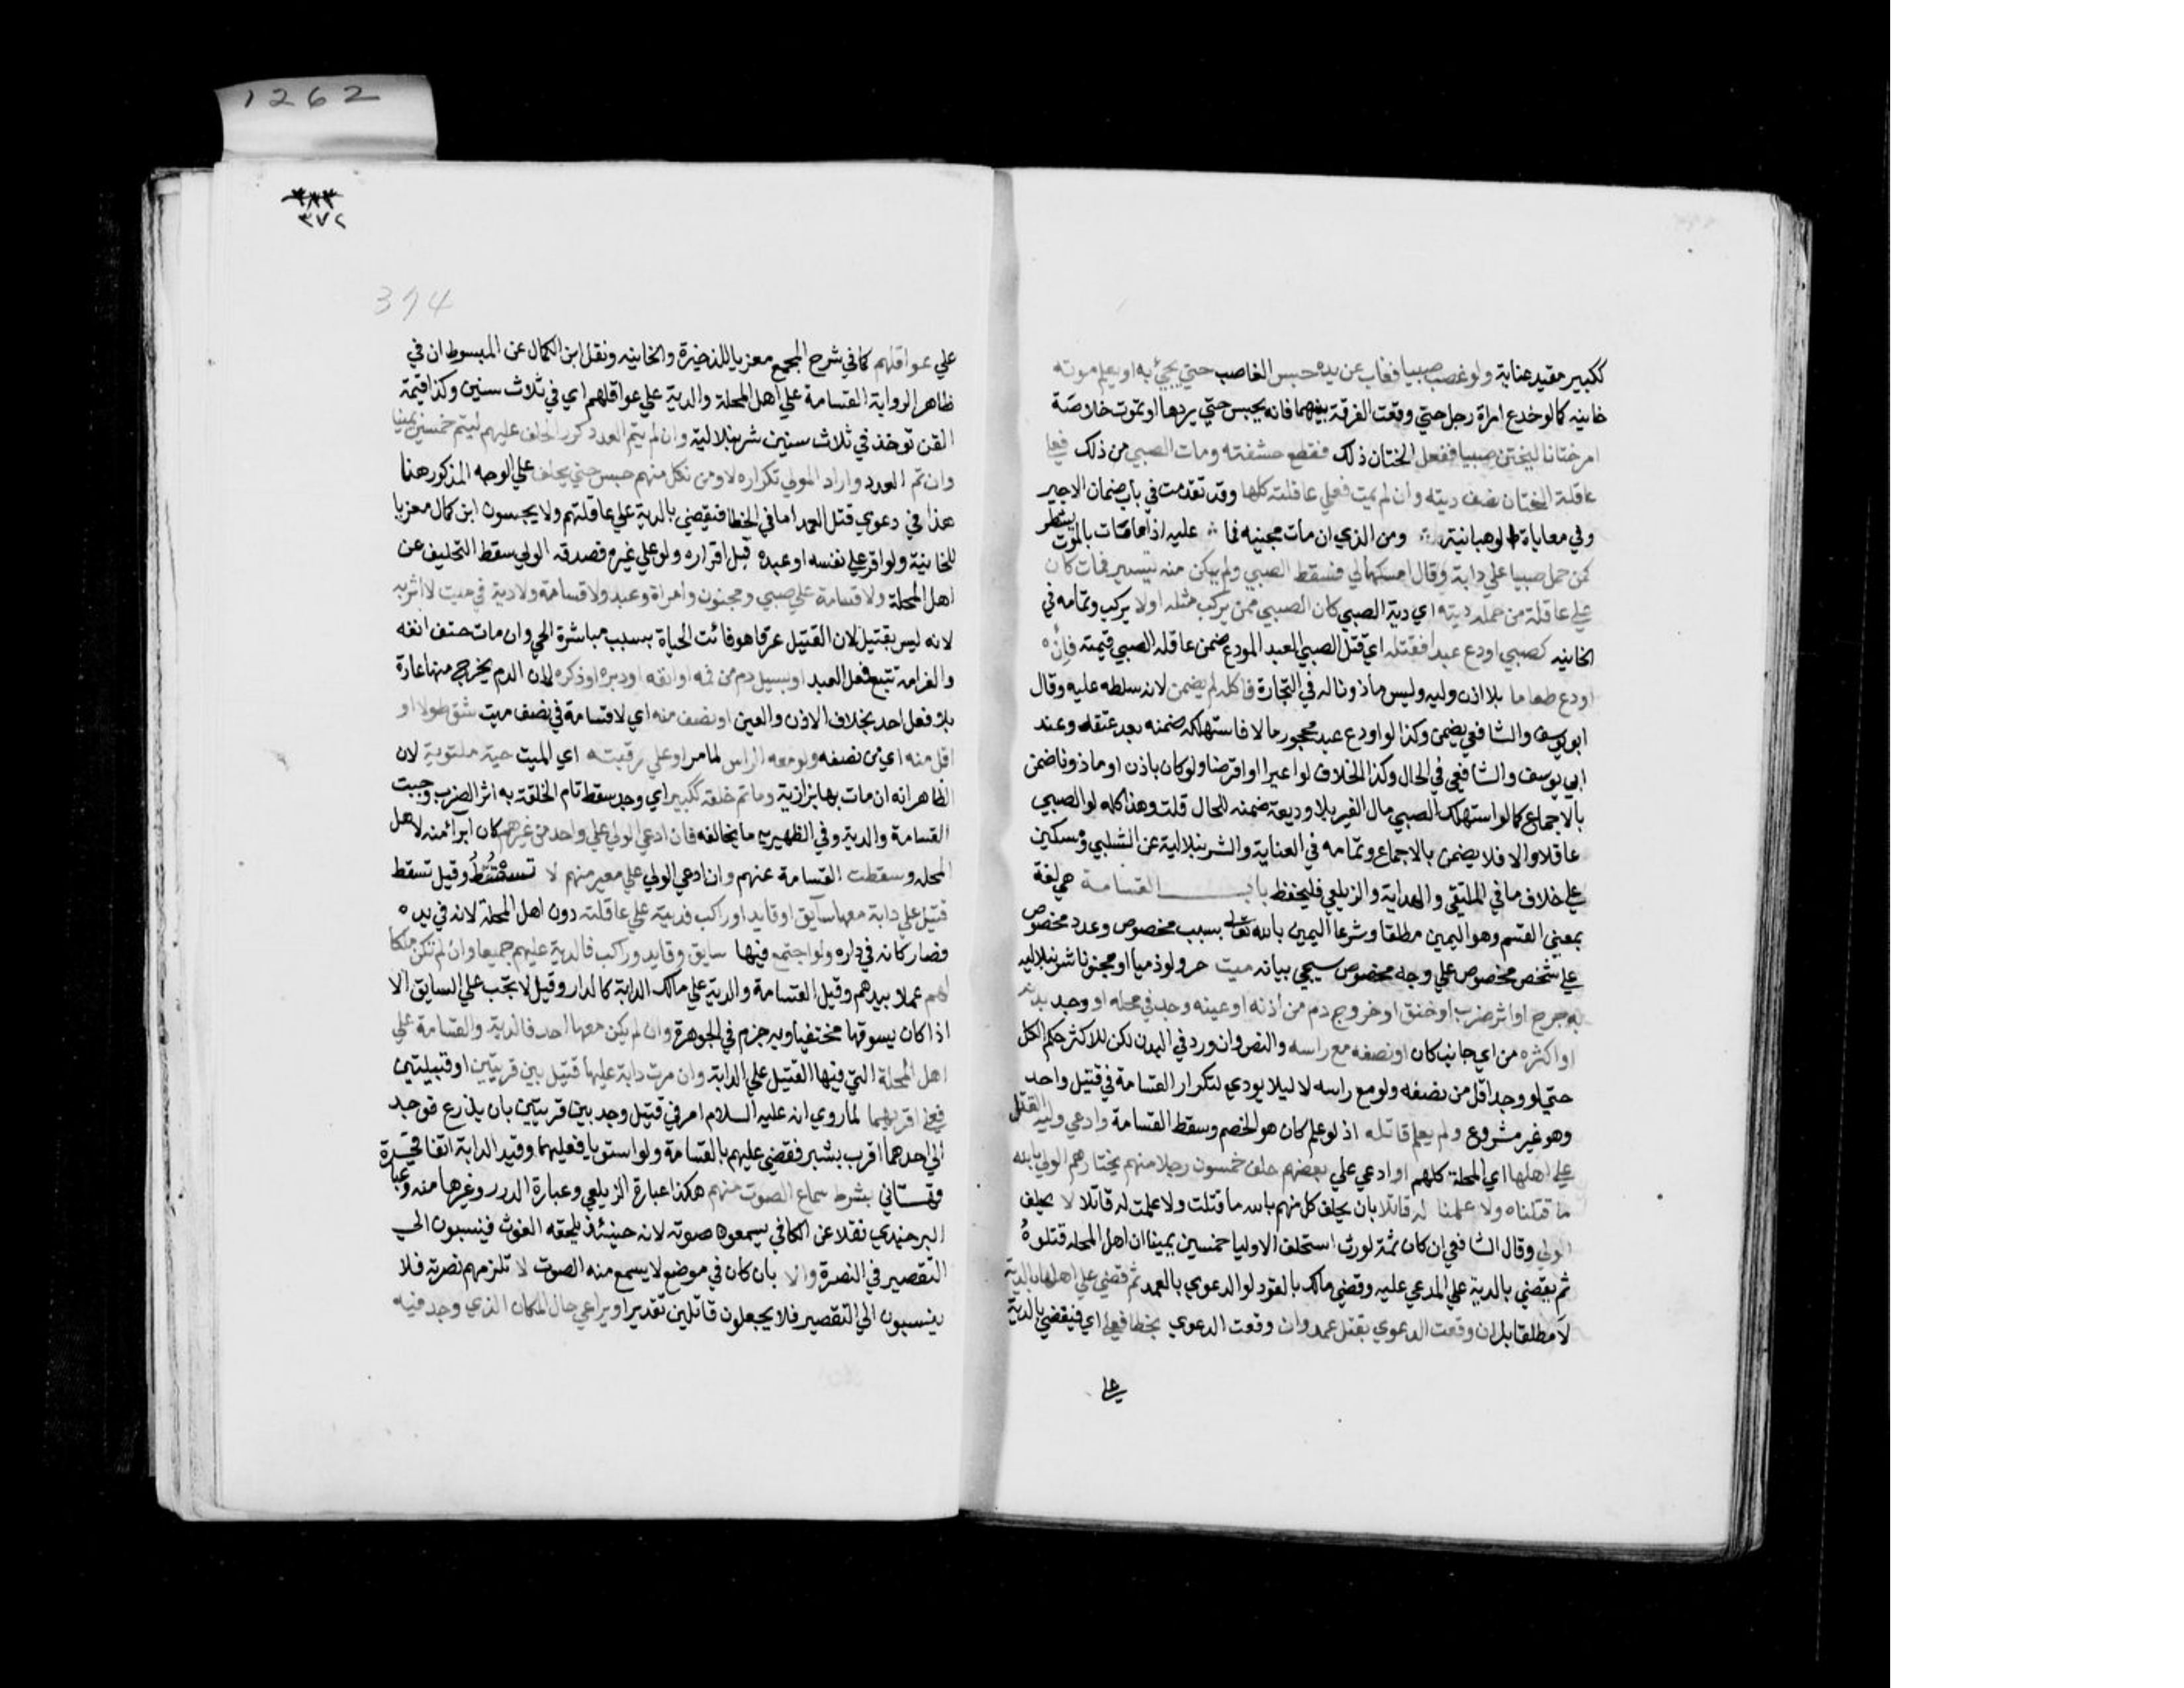 ككبير مقيد عناية ولو غصب صبيا فغاب عن يده حبس الغاصب حتي يجئ به او يعلم موته
خانيه كما لو خدع امراة رجل حتي وقعت الفرقة بينهما فانه يحبس حتي يردها او تموت خلاصة
امر ختانا ليختن صبيا ففعل الختان ذلك فقطع حشفته ومات الصبي من ذلك فعلي
عاقلة الختان نصف ديته وان لم يمت فعلي عاقلته كلها وقد تقدمت في باب ضمان الاجير
وفي معاياة الوهبانية ومن الذي ان مات مجنيه فما عليه اذا ما مات بالموت يشطر
كمن حمل صبيا علي دابة وقال امسكها لي فسقط الصبي ولم يكن منه تسيير فمات كان
علي عاقلة من حمله ديته اي دية الصبي كان الصبي ممن يركب مثله اولا يركب وتمامه في
الخانيه كصبي اودع عبدا فقتله اي قتل الصبي العبد المودع ضمن عاقلة الصبي قيمته فان
اودع طعاما بلا اذن وليه وليس ماذونا له في التجارة فاكله لم يضمن لانه سلطه عليه وقال
ابو يوسف والشافعي يضمن وكذا لو اودع عبد محجور مالا فاستهلكه ضمنه بعد عتقه وعند
ابي يوسف والشافعي في الحال وكذا الخلاف لو اعيرا او اقرضا ولو كان باذن او ماذونا ضمن
بالاجماع كما لو استهلك الصبي مال الغير بلا وديعة ضمنه للحال قلت وهذا كله لو الصبي
عاقلا والا فلا يضمن بالاجماع وتمامه في العناية والشرنبلالية عن الشلبي ومسكين
علي خلاف ما في الملتقي والهداية والزيلعي فليحفظ باب القسامة هي لغة
بمعني القسم وهو اليمين مطلقا وشرعا اليمين بالله تعالي بسبب مخصوص وعدد مخصوص
علي شخص مخصوص علي وجه مخصوص سيجي بيانه ميت حر ولو ذميا او مجنونا شرنبلاليه
به جرح او اثر ضرب او خنق او خروج دم من اذنه او عينه وجد في محله او وجد بدنه
او اكثره من اي جانب كان او نصفه مع راسه والنص وان ورد في البدن لكن للاكثر حكم الكل
حتي لو وجد اقل من نصفه ولو مع راسه لا ليلا يودي لتكرار القسامة في قتيل واحد
وهو غير مشروع ولم يعلم قاتله اذ لو علم كان هو الخصم وسقط القسامة وادعي وليه القتل
علي اهلها اي المحلة كلهم او ادعي علي بعضهم حلف خمسون رجلا منهم يختارهم الولي بالله
ما قتلناه ولا علمنا له قاتلا بان يحلف كل منهم بالله ما قتلت ولا علمت له قاتلا لا يحلف
الولي وقال الشافعي ان كان ثمة لوث استحلف الاوليا خمسين يمينا ان اهل المحله قتلوه
ثم يقضي بالدية علي المدعي عليه وقضي مالك بالقود لو الدعوي بالعمد ثم قضي علي اهلها بالدية
لا مطلقا بل ان وقعت الدعوي بقتل عمد وان وقعت الدعوي بخطا فعلي اي فيقضي بالدية
علي
1262
٣٧٢
374
علي عواقلهم كما في شرح المجمع معزيا للذخيرة والخانيه ونقل ابن الكمال عن المبسوط ان في
ظاهر الرواية القسامة علي اهل المحلة والدية علي عواقلهم اي في ثلاث سنين وكذا قيمة
القن توخذ في ثلاث سنين شرنبلالية وان لم يتم العدد كرر الحلف عليهم ليتم خمسين يمينا
وان تم العدد واراد المولي تكراره لا ومن نكل منهم حبس حتي يحلف علي الوجه المذكور هنا
هذا في دعوي قتل العمد اما في الخطا فيقضي بالدية علي عاقلتهم ولا يحبسون ابن كمال معزيا
للخانية ولو اقر علي نفسه او عبده قبل اقراره ولو علي غيره وصدقه الولي سقط التحليف عن
اهل المحلة ولا قسامة علي صبي ومجنون وامراة وعبد ولا قسامة ولا دية في ميت لا اثر به
لانه ليس بقتيل لان القتيل عرفا هو فائت الحياة بسبب مباشرة الحي وان مات حتف انفه
والغرامة تتبع فعل العبد او يسيل دم من فمه او انفه او دبره او ذكره لان الدم يخرج منها عادة
بلا فعل احد بخلاف الاذن والعين او نصف منه اي لا قسامة في نصف ميت شق طولا او
اقل منه اي من نصفه ولو معه الراس لما مر او علي رقبته اي الميت حية ملتوية لان
الظاهر انه ان مات بها بزازية وما تم خلقه ككبير اي وجد سقط تام الخلقة به اثر الضرب وجبت
القسامة والدية وفي الظهيرية ما يخالفه فان ادعي الولي علي واحد من غيرهم كان ابراء منه لاهل
المحله وسقطت القسامة عنهم وان ادعي الولي علي معين منهم لا تسقط وقيل تسقط
قتيل علي دابة معها سائق او قايد او راكب فديته علي عاقلته دون اهل المحلة لانه في يده
فصار كانه في داره ولو اجتمع فيها سايق وقايد وراكب فالدية عليهم جميعا وان لم تكن ملكا
لهم عملا بيدهم وقيل القسامة والدية علي مالك الدابة كالدار وقيل لا تجب علي السايق الا
اذا كان يسوقها مختفيا وبه جزم في الجوهرة وان لم يكن معها احد فالدية والقسامة علي
اهل المحلة التي فيها القتيل علي الدابة وان مرت دابة عليها قتيل بين قريتين او قبيلتين
فعلي اقربهما لما روي انه عليه السلام امر في قتيل وجد بين قريتين بان يذرع فوجد
الي احدهما اقرب بشبر فقضي عليهم بالقسامة ولو استويا فعليهما وقيد الدابة اتفاقي
قهستاني بشرط سماع الصوت منهم هكذا عبارة الزيلعي وعبارة الدرر وغيرها منه وعبارة
البرجندي نقلا عن الكافي يسمعون صوته لانه حينئذ يلحقه الغوث فينسبون الي
التقصير في النصرة والا بان كان في موضع لا يسمع منه الصوت لا تلزمهم نصرته فلا
ينسبون الي التقصير فلا يجعلون قاتلين تقديرا ويراعي حال المكان الذي وجد فيه